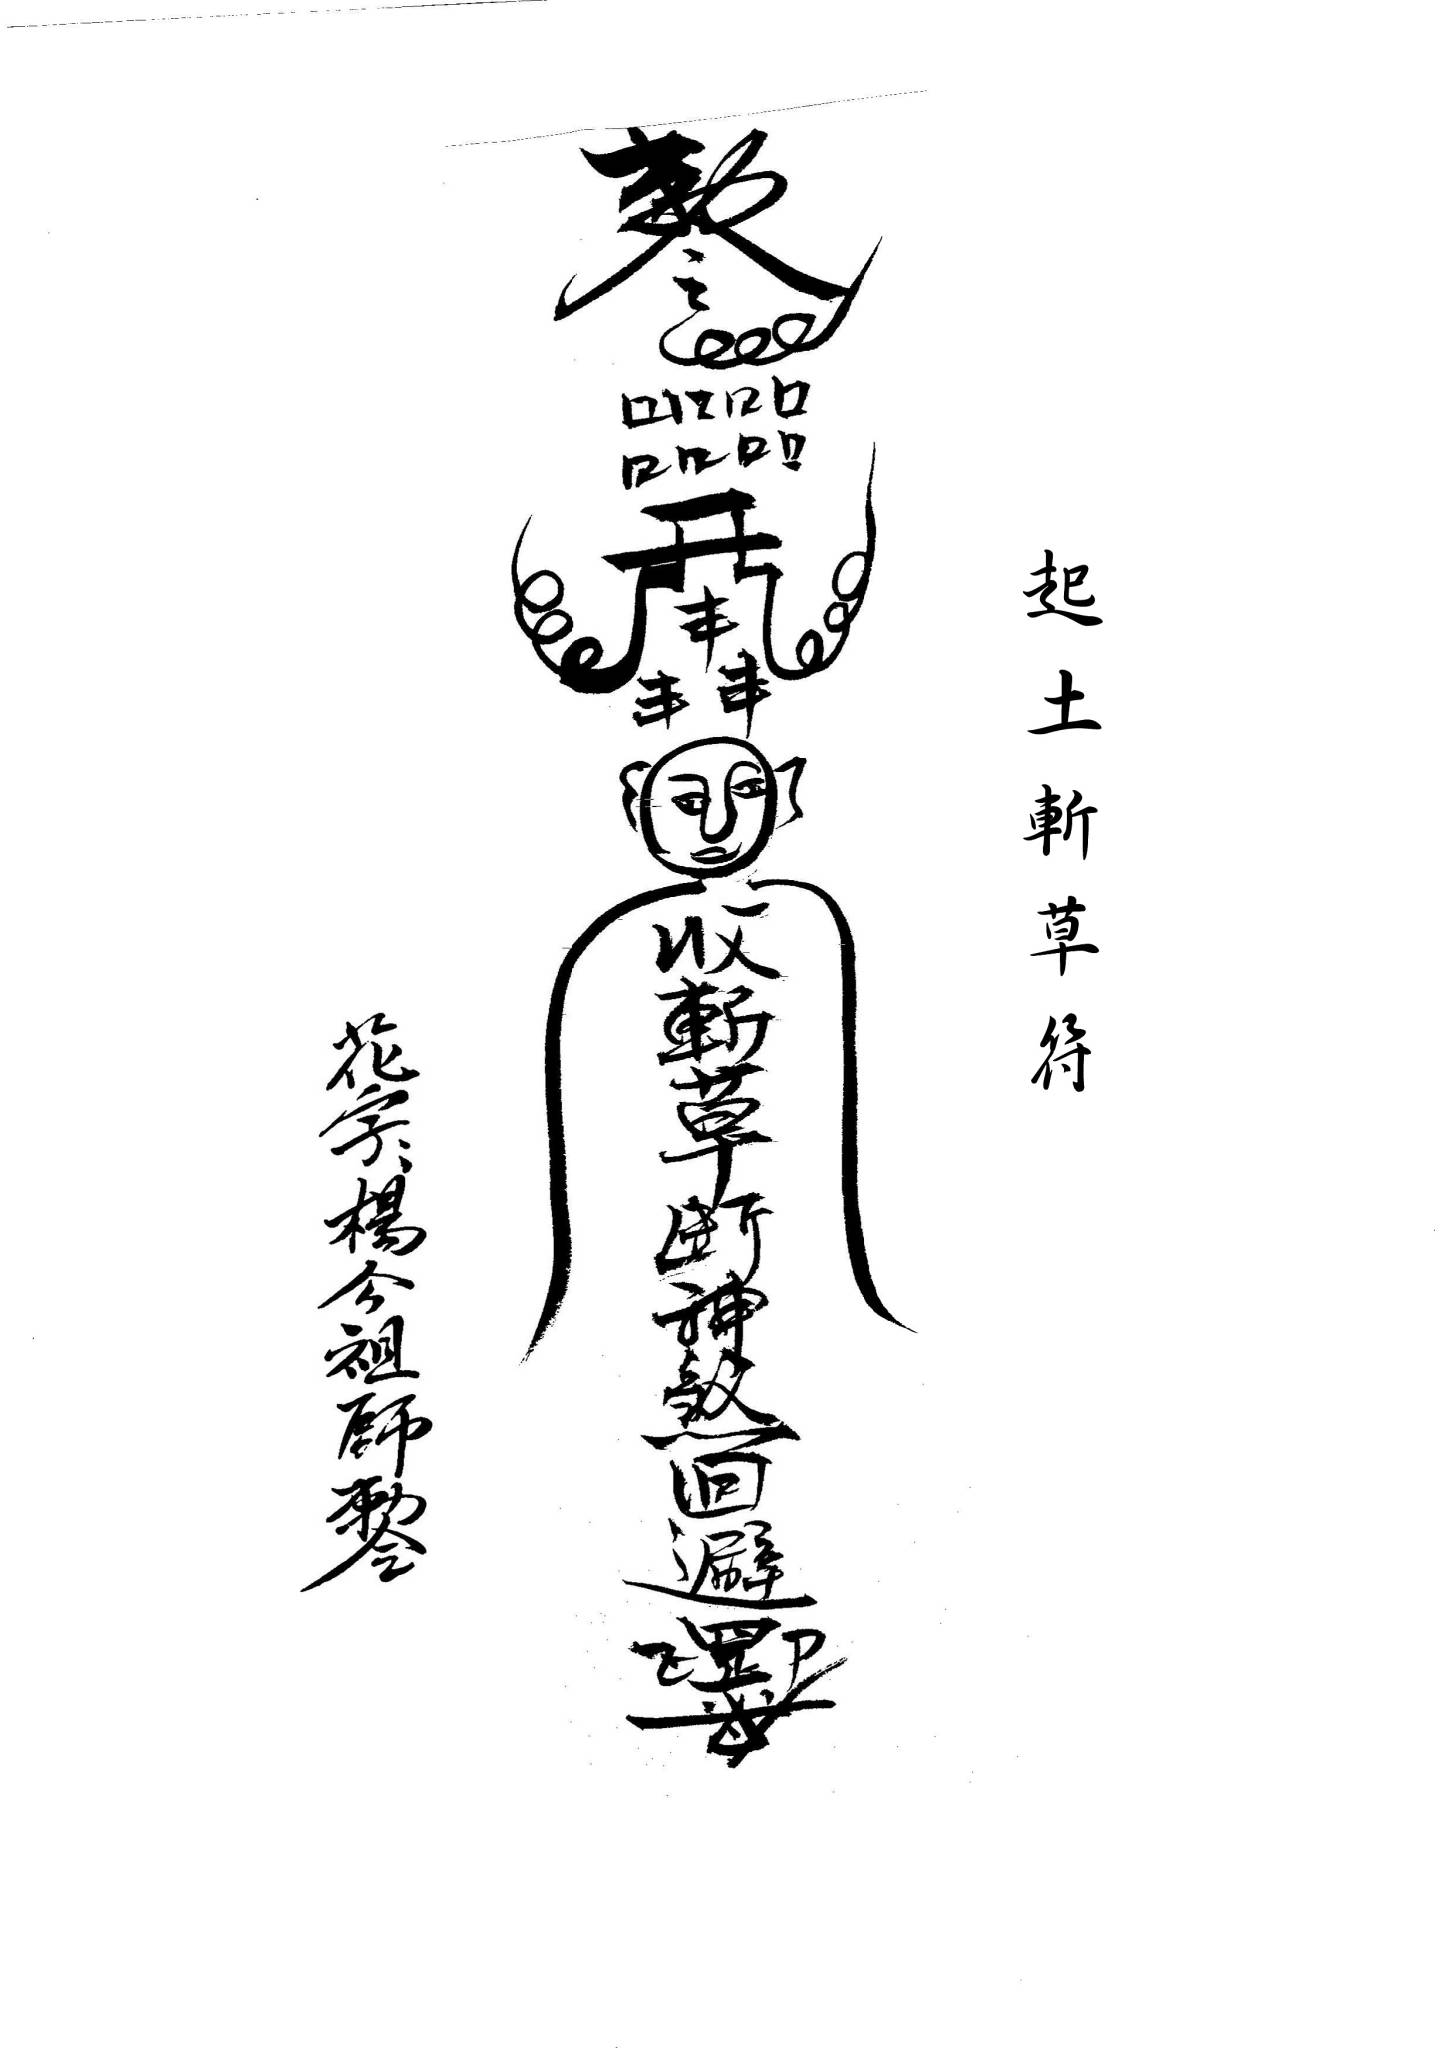 起土斬草符
敕令
收斬草断神煞回避
罡
花字、楊令祖師敕令